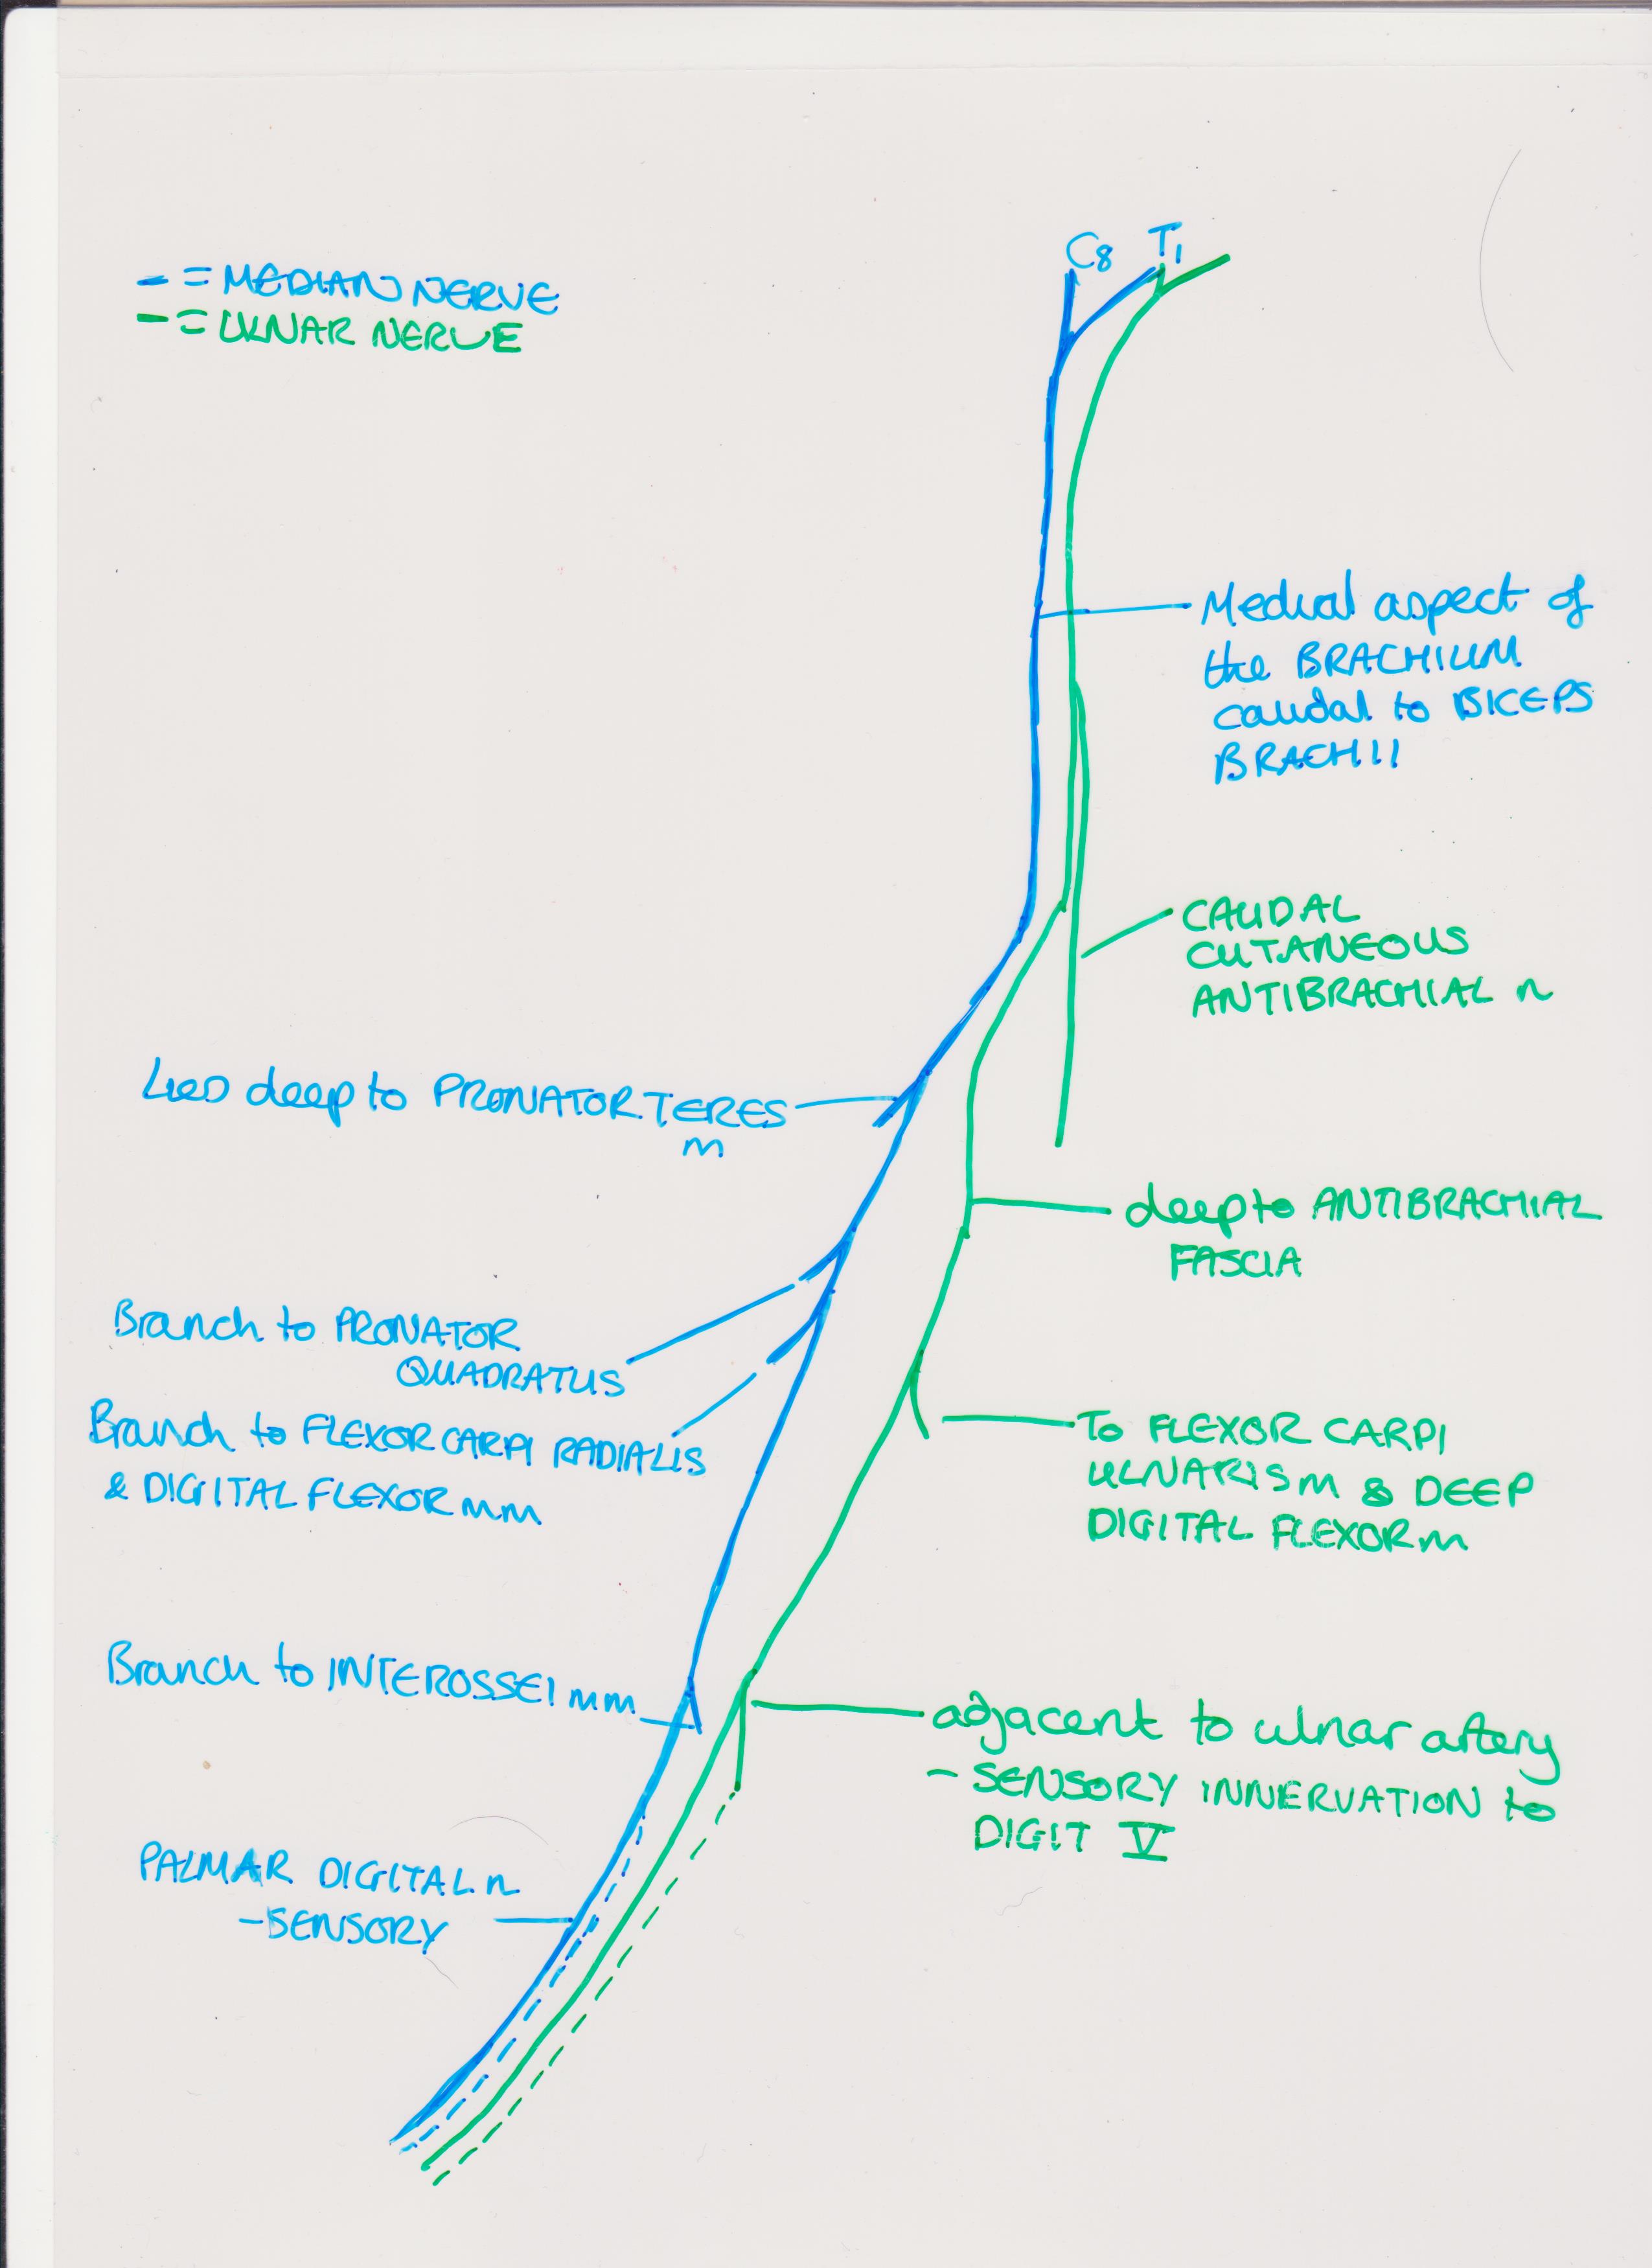 - = MEDIAN NERVE
- = ULNAR NERVE
C8 T1
Medial aspect of
the BRACHIUM
caudal to BICEPS
BRACHII
CAUDAL
CUTANEOUS
ANTIBRACHIAL n
Lies deep to PRONATOR TERES
m
deep to ANTIBRACHIAL
FASCIA
Branch to PRONATOR
QUADRATUS
Branch to FLEXOR CARPI RADIALIS
& DIGITAL FLEXOR mm
To FLEXOR CARPI
ULNARIS m & DEEP
DIGITAL FLEXOR m
Branch to INTEROSSEI mm
adjacent to ulnar artery
- SENSORY INNERVATION to
DIGIT V
PALMAR DIGITAL n
- SENSORY